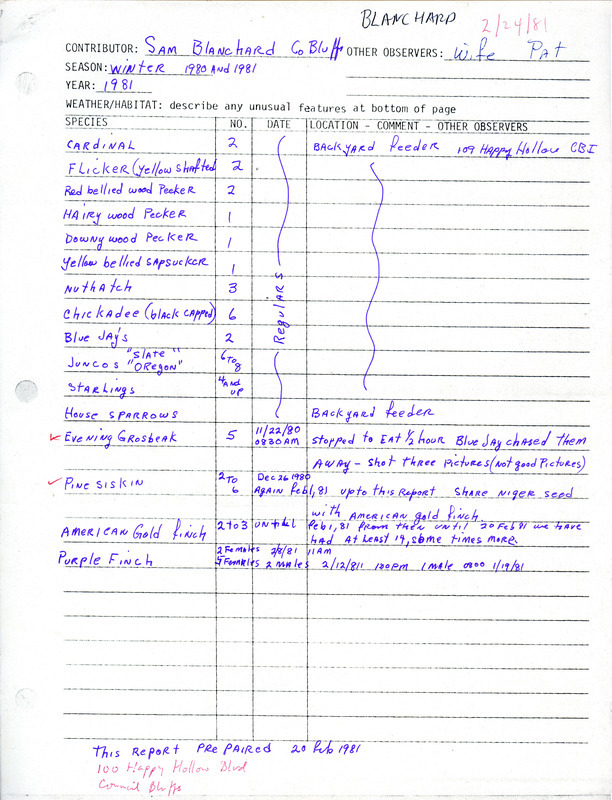 BLANCHARD
2/24/81
CONTRIBUTOR: Sam Blanchard Co Bluffs OTHER OBSERVERS: Wife Pat
SEASON: Winter 1980 AND 1981
YEAR: 1981
WEATHER/HABITAT: describe any unusual features at bottom of page
SPECIES NO. DATE LOCATION - COMMENT - OTHER OBSERVERS
CARDINAL 2 BACKYARD feeder 109 Happy Hollow CBI
Flicker (yellow shafted 2
Red bellied wood Pecker 2
HAiry wood Pecker 1
Downy wood Pecker 1
Yellow bellied SAPsucker 1
NuthAtch 3
Chickadee (black capped) 6
Regulars
Blue JAy's 2
Juncos "Slate" "Oregon" 6 To 8
StarLings 4 And up
House SPARROWS BACKyard feeder
Evening GrosbeAk 5 11/22/80 0830 AM stopped to EAt 1/2 hour Blue Jay chased them
AWAY - Shot three pictures (not good Pictures)
Pine siskin 2 To 6 Dec 26 1980
AGAIN Feb 1, 81 up to this report SHARE NIGER seed
with AMERICAN gold finch
AMERICAN Gold finch 2 to 3 UNtil Feb 1, 81 from then until 20 Feb 81 we HAVE
had At least 19, some times more.
Purple Finch 2 Females 2/8/81 11AM
5 Females 2 mAles 2/12/81 1 MAle 0800 1/19/81
This Report PrePaired 20 Feb 1981
100 Happy Hollow Blvd
Council Bluffs